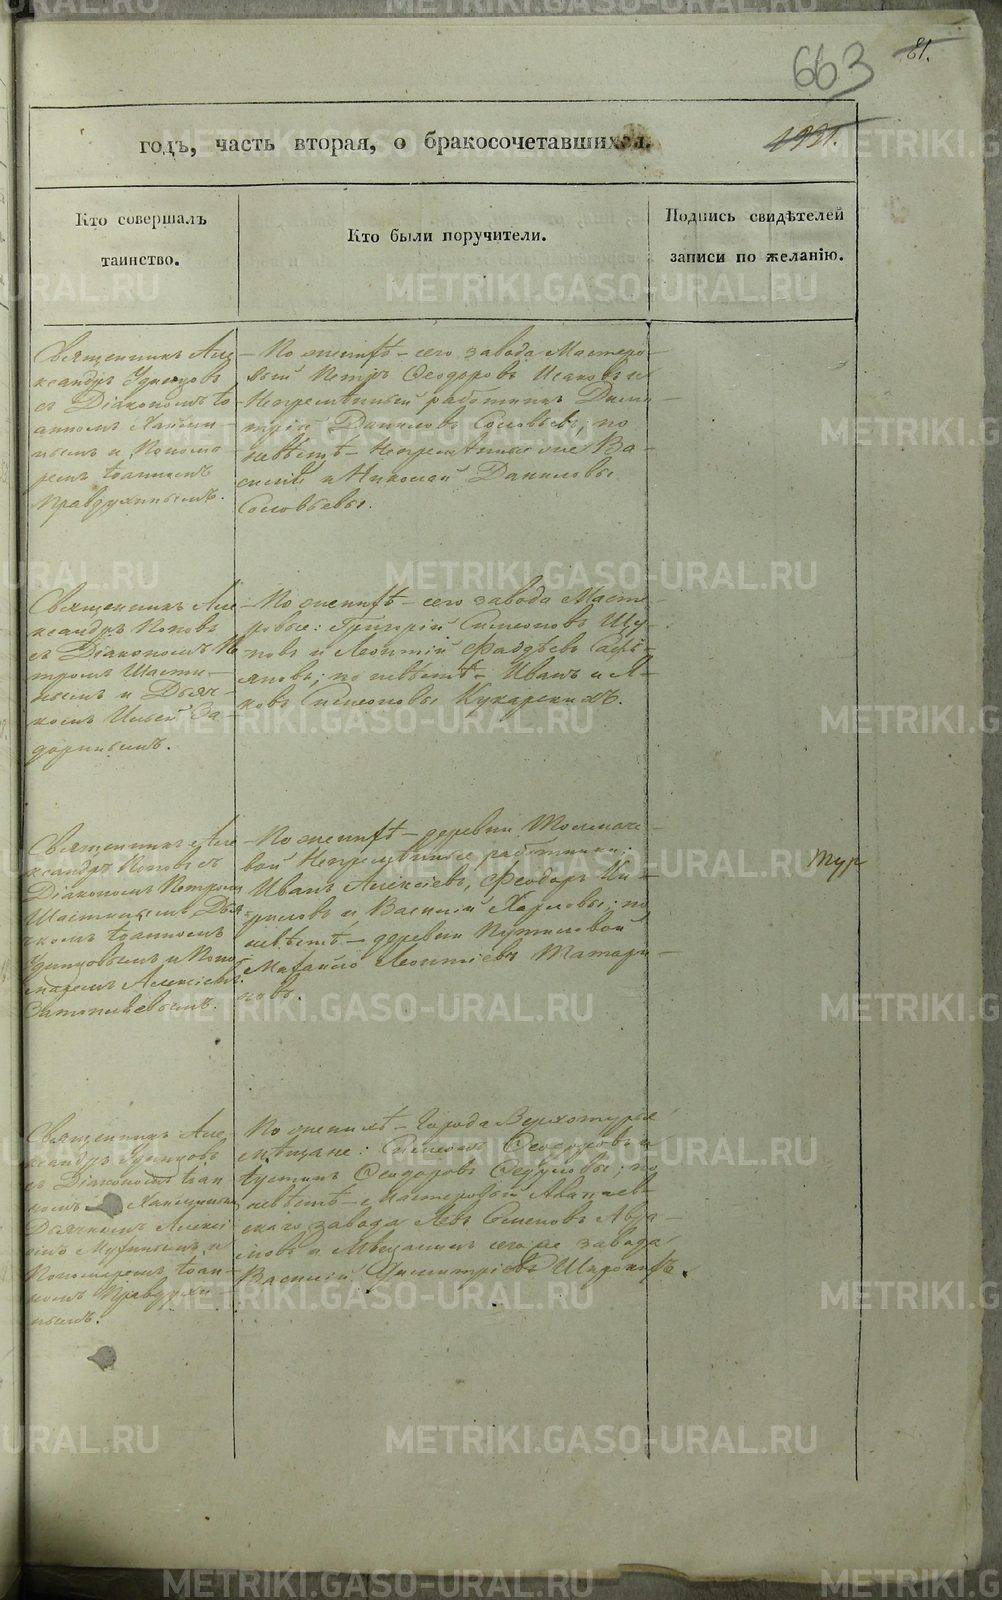 663
81.
годъ, часть вторая, о бракосочетавшихся.
Кто совершалъ
таинство.
Кто были поручители.
Подпись свидѣтелей
записи по желанію.
Священникъ Але
ксандръ Удинцовъ
съ Діакономъ Іо
анномъ
и Понома
ремъ Іоанномъ
Правдухинымъ.
— По женихѣ — сего завода Мастеро
вый Петръ Ѳеодоровъ Исаковъ и
Непремѣнный работникъ Дими
трій Даниловъ Соловьевъ; по
невѣстѣ — Непремѣнные Ва
силій и Николай Даниловы
Соловьевы.
Священникъ Але
ксандръ Поповъ
съ Діакономъ Пе
тромъ Шасти
нымъ и Дьяч
комъ Ильей За
дорнымъ.
— По женихѣ — сего завода Масте
ровые: Григорій Симеоновъ Щу
повъ и Леонтій Фаддѣевъ
; по невѣстѣ — Иванъ и Я
ковъ Симеоновы Кукарскихъ.
Священникъ Але
ксандръ Поповъ съ
Діакономъ Петромъ
Шастинымъ, Дья
чкомъ Іоанномъ
Удинцовымъ и Поно
маремъ Алексіемъ
— По женихѣ — деревни Толмаче
вой Непремѣнные работники:
Иванъ Алексіевъ, Феодоръ Ки
риловъ и Василій Карловы; по
невѣстѣ — деревни Путиловой
Михайло Леонтіевъ Татари
новъ.
Тур
Священникъ Але
ксандръ Удинцовъ
съ Діакономъ Іоан
номъ
Дьячкомъ Алексі
емъ и
Пономаремъ Іоан
номъ Правдухи
нымъ.
По женихѣ — Города Верхотурья
мѣщане: Симеонъ Ѳеодоровъ и
Іустинъ Ѳеодоровъ; по
невѣстѣ — Мастеровый Алапаев
скаго завода Левъ Семеновъ Абра
мовъ и Мѣщанинъ сего же завода
Василій Димитріевъ
METRIKI.GASO-URAL.RU